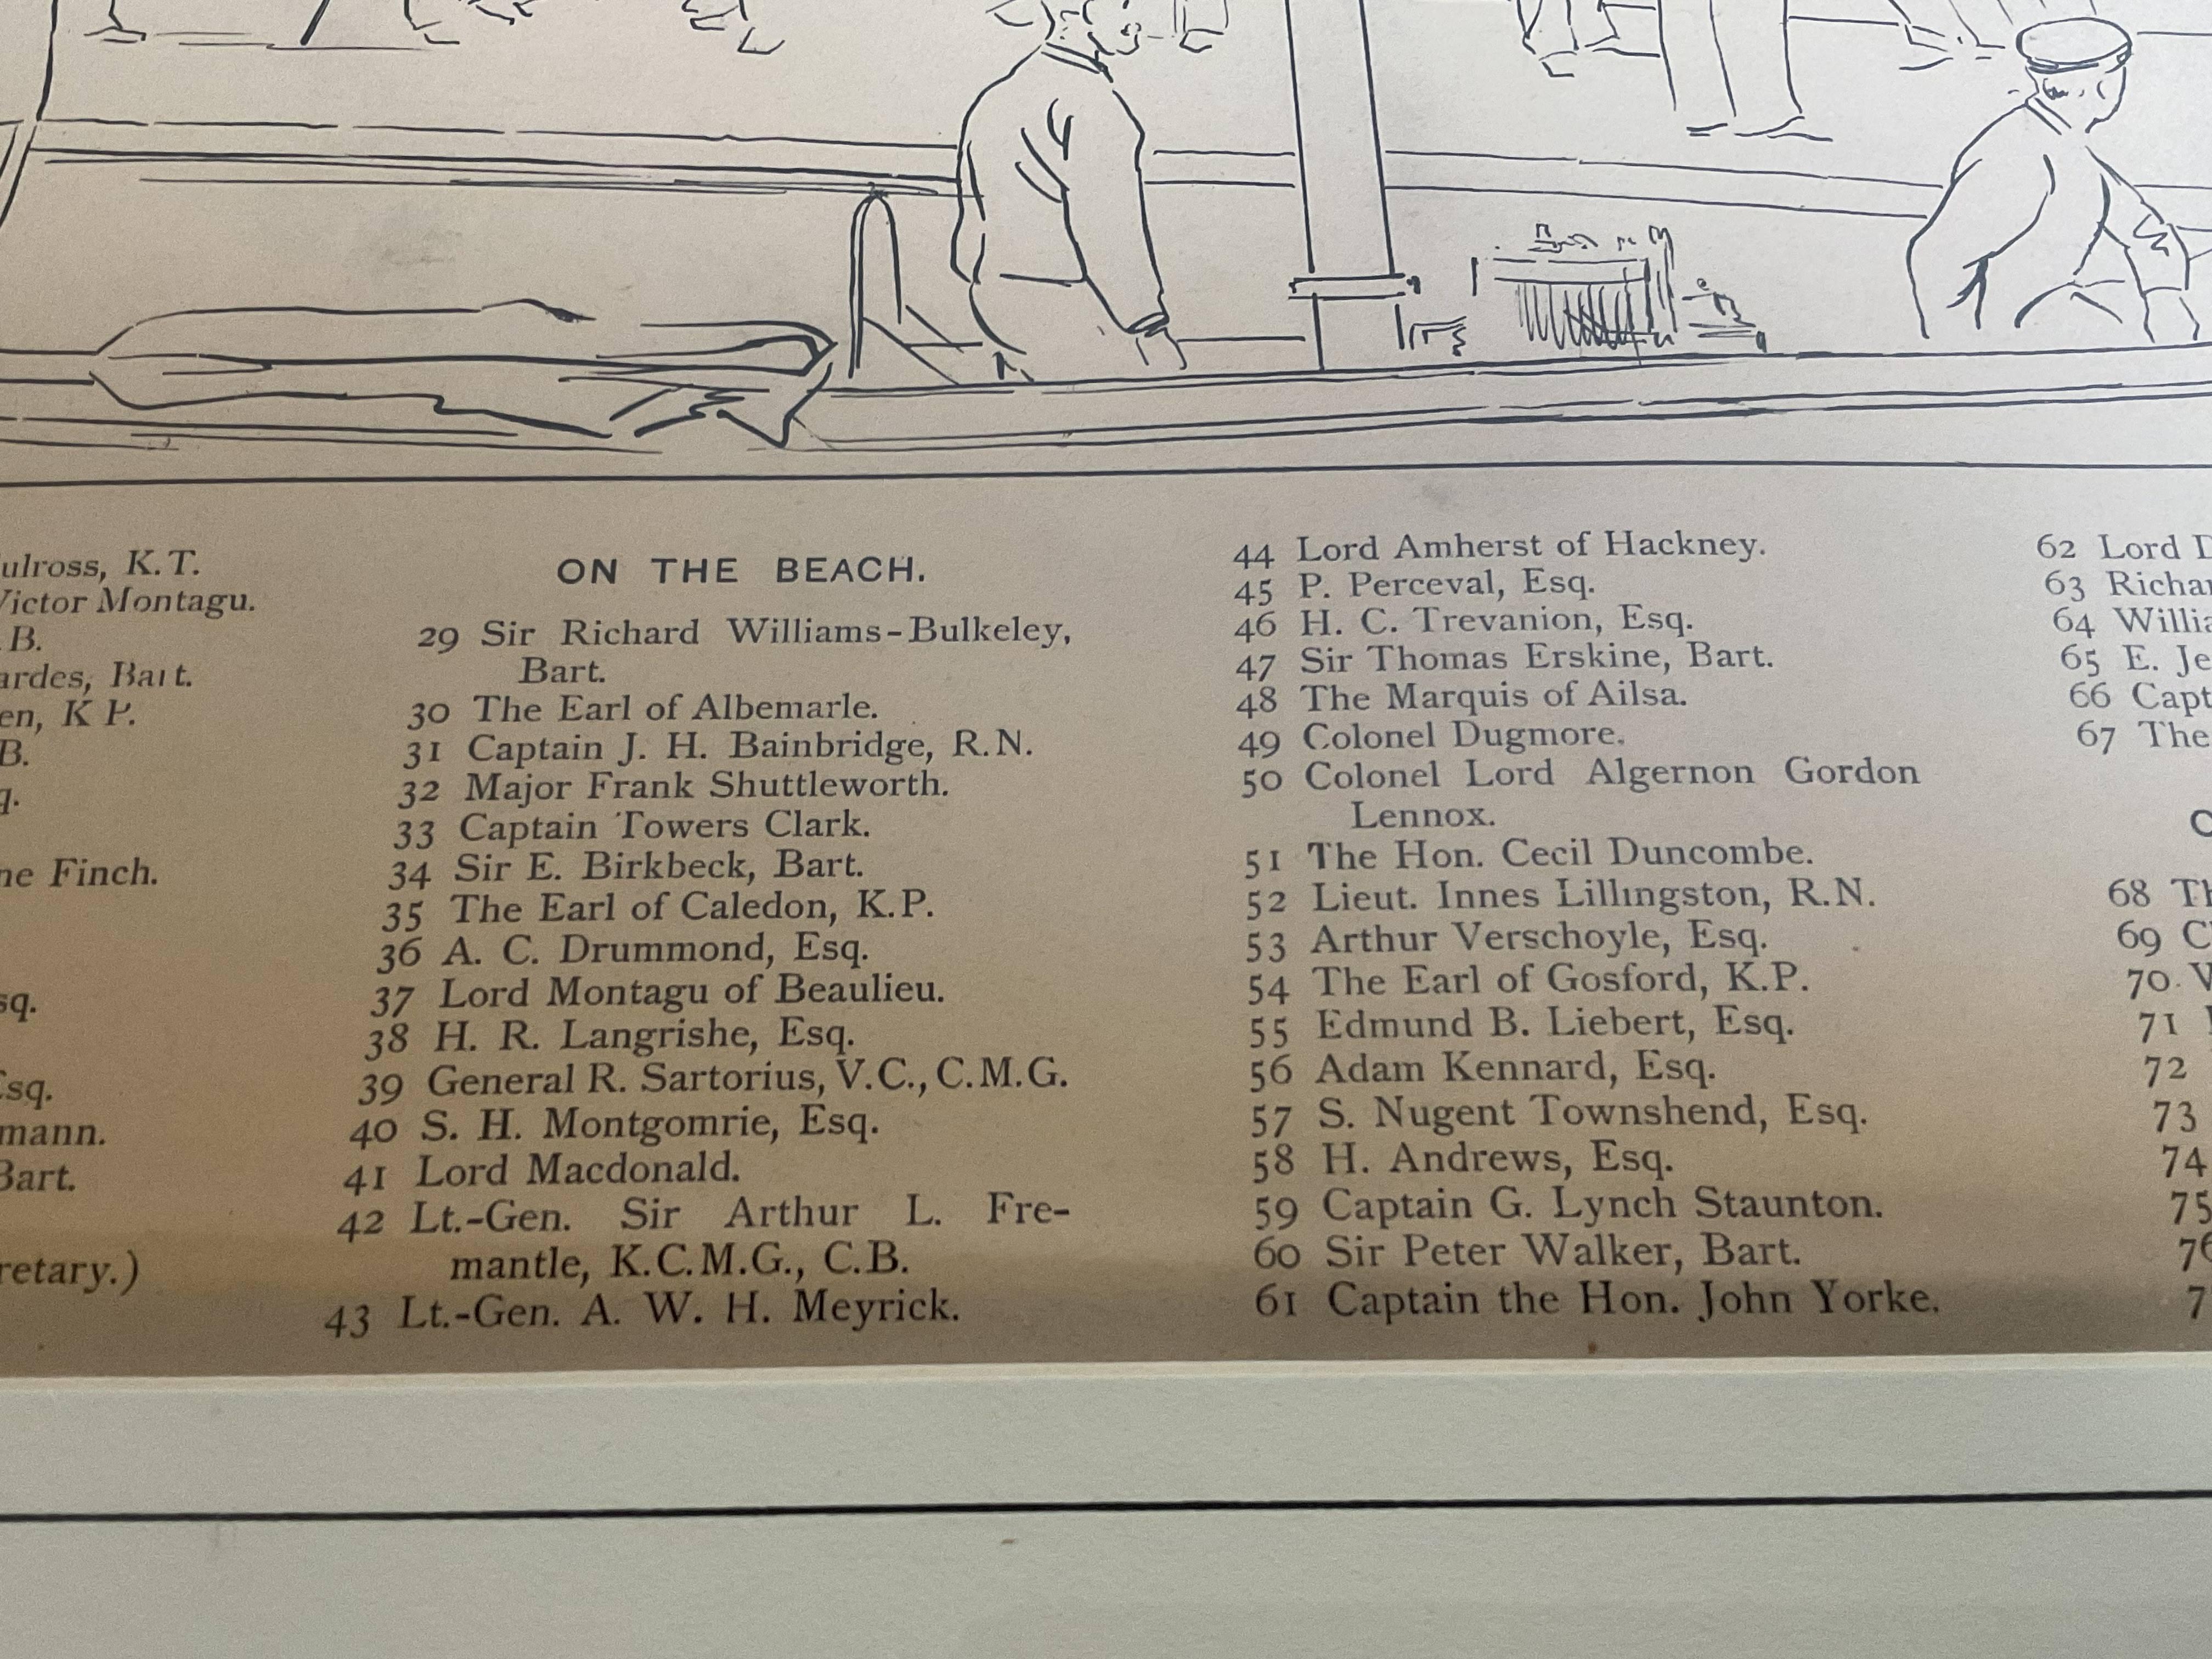 ulross, K.T.
Victor Montagu.
B.
ardes, Bart.
en, K P.
B.
q.
ne Finch.
sq.
Esq.
mann.
Bart.
retary.)
ON THE BEACH.
29 Sir Richard Williams-Bulkeley,
Bart.
30 The Earl of Albemarle.
31 Captain J. H. Bainbridge, R.N.
32 Major Frank Shuttleworth.
33 Captain Towers Clark.
34 Sir E. Birkbeck, Bart.
35 The Earl of Caledon, K.P.
36 A. C. Drummond, Esq.
37 Lord Montagu of Beaulieu.
38 H. R. Langrishe, Esq.
39 General R. Sartorius, V.C., C.M.G.
40 S. H. Montgomrie, Esq.
41 Lord Macdonald.
42 Lt.-Gen. Sir Arthur L. Fre-
mantle, K.C.M.G., C.B.
43 Lt.-Gen. A. W. H. Meyrick.
44 Lord Amherst of Hackney.
45 P. Perceval, Esq.
46 H. C. Trevanion, Esq.
47 Sir Thomas Erskine, Bart.
48 The Marquis of Ailsa.
49 Colonel Dugmore.
50 Colonel Lord Algernon Gordon
Lennox.
51 The Hon. Cecil Duncombe.
52 Lieut. Innes Lillingston, R.N.
53 Arthur Verschoyle, Esq.
54 The Earl of Gosford, K.P.
55 Edmund B. Liebert, Esq.
56 Adam Kennard, Esq.
57 S. Nugent Townshend, Esq.
58 H. Andrews, Esq.
59 Captain G. Lynch Staunton.
60 Sir Peter Walker, Bart.
61 Captain the Hon. John Yorke.
62 Lord D
63 Richar
64 Willia
65 E. Je
66 Capt
67 The
68 Th
69 C
70 V
71
72
73
74
75
76
7